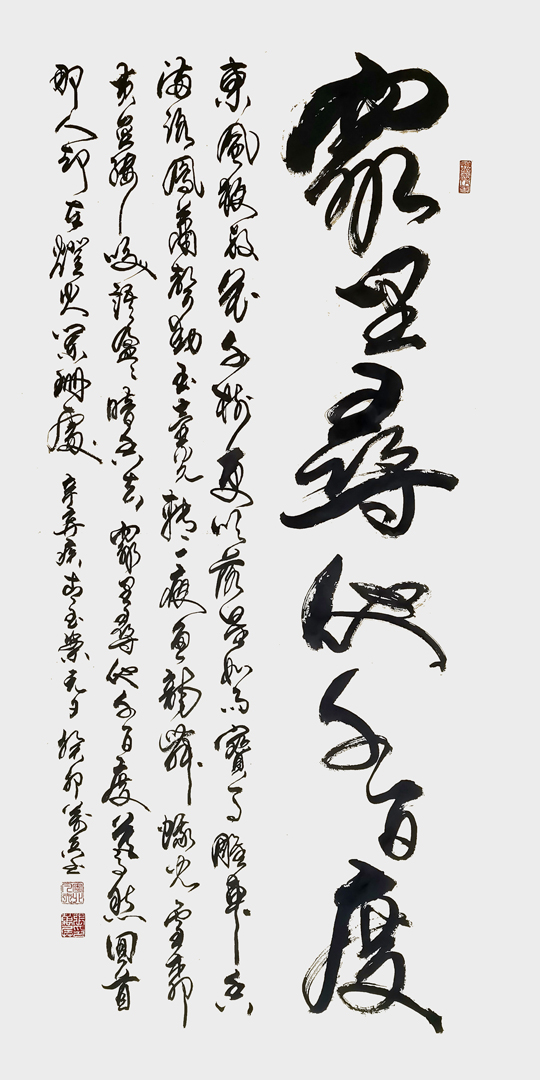 眾里尋他千百度
東風夜放花千樹更吹落星如雨寶馬雕車香
滿路鳳簫聲動玉壺光轉一夜魚龍舞蛾兒雪柳
黃金縷笑語盈盈暗香去眾里尋他千百度驀然回首
那人卻在燈火闌珊處 辛棄疾青玉案元夕 癸卯